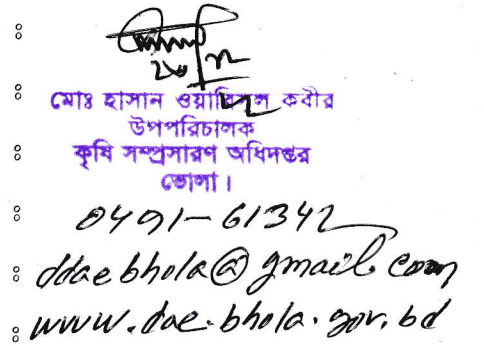 মোঃ হাসান ওয়ারিসুল কবীর
উপপরিচালক
কৃষি সম্প্রসারণ অধিদপ্তর
ভোলা।
0491-61342
ddaebhola@gmail.com
www.dae.bhola.gov.bd